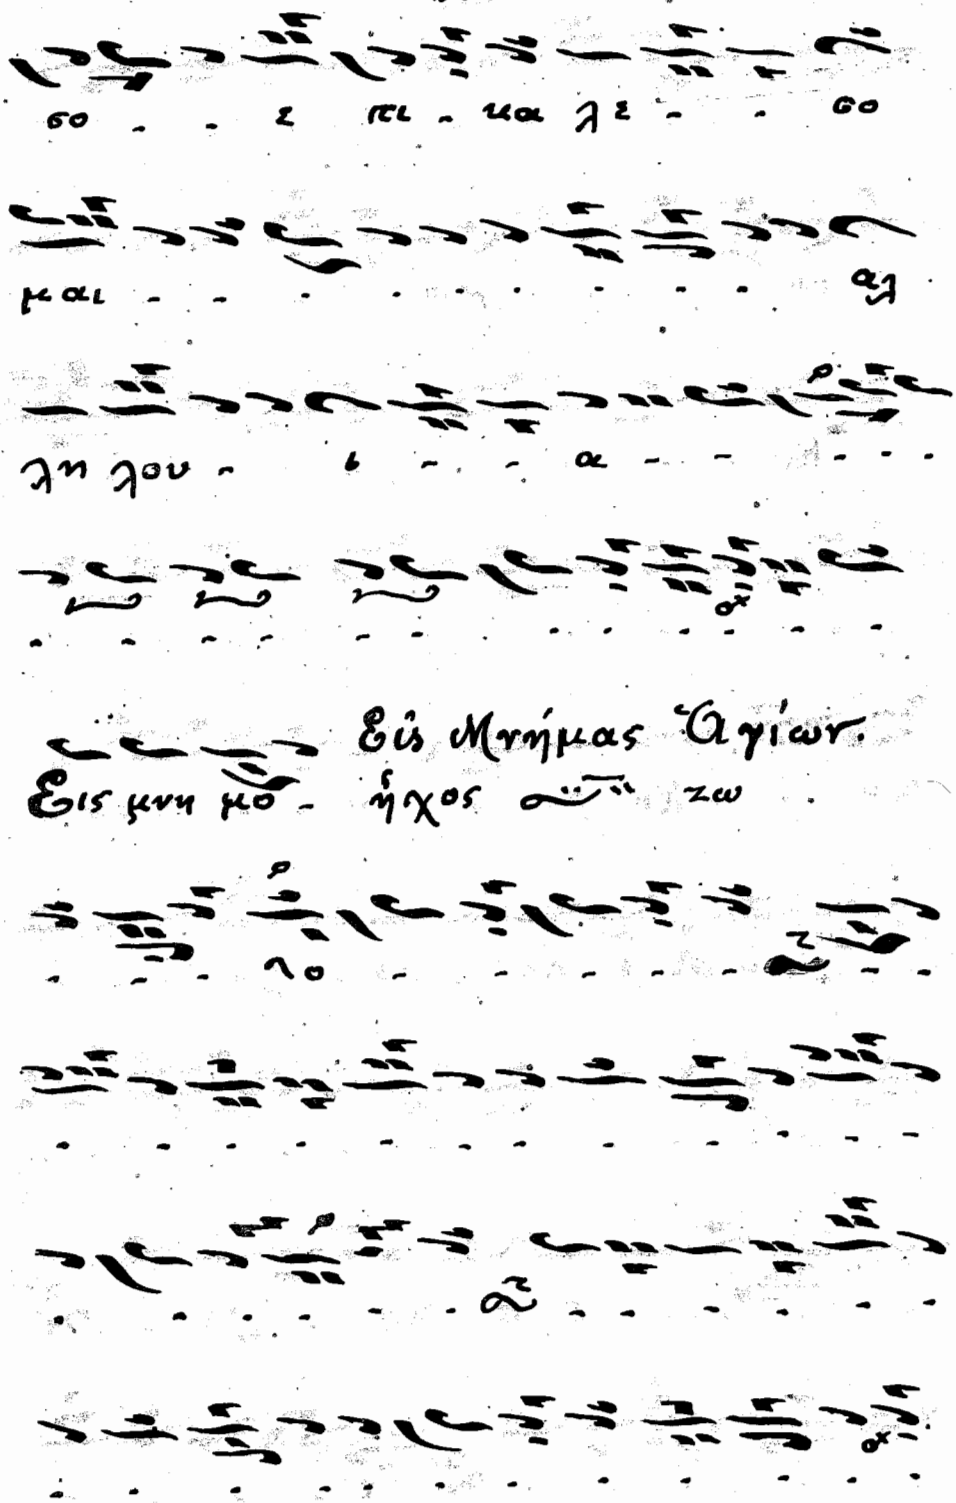 σο - - ε πι - κα λε - - σο
μαι - - - - - - - - - αλ
λη λου - ι - - α - - - - -
Εἰς Μνήμας Ἁγίων.
Εις μνη μο - ἦχος ζω
- - - νο - - - - - - -